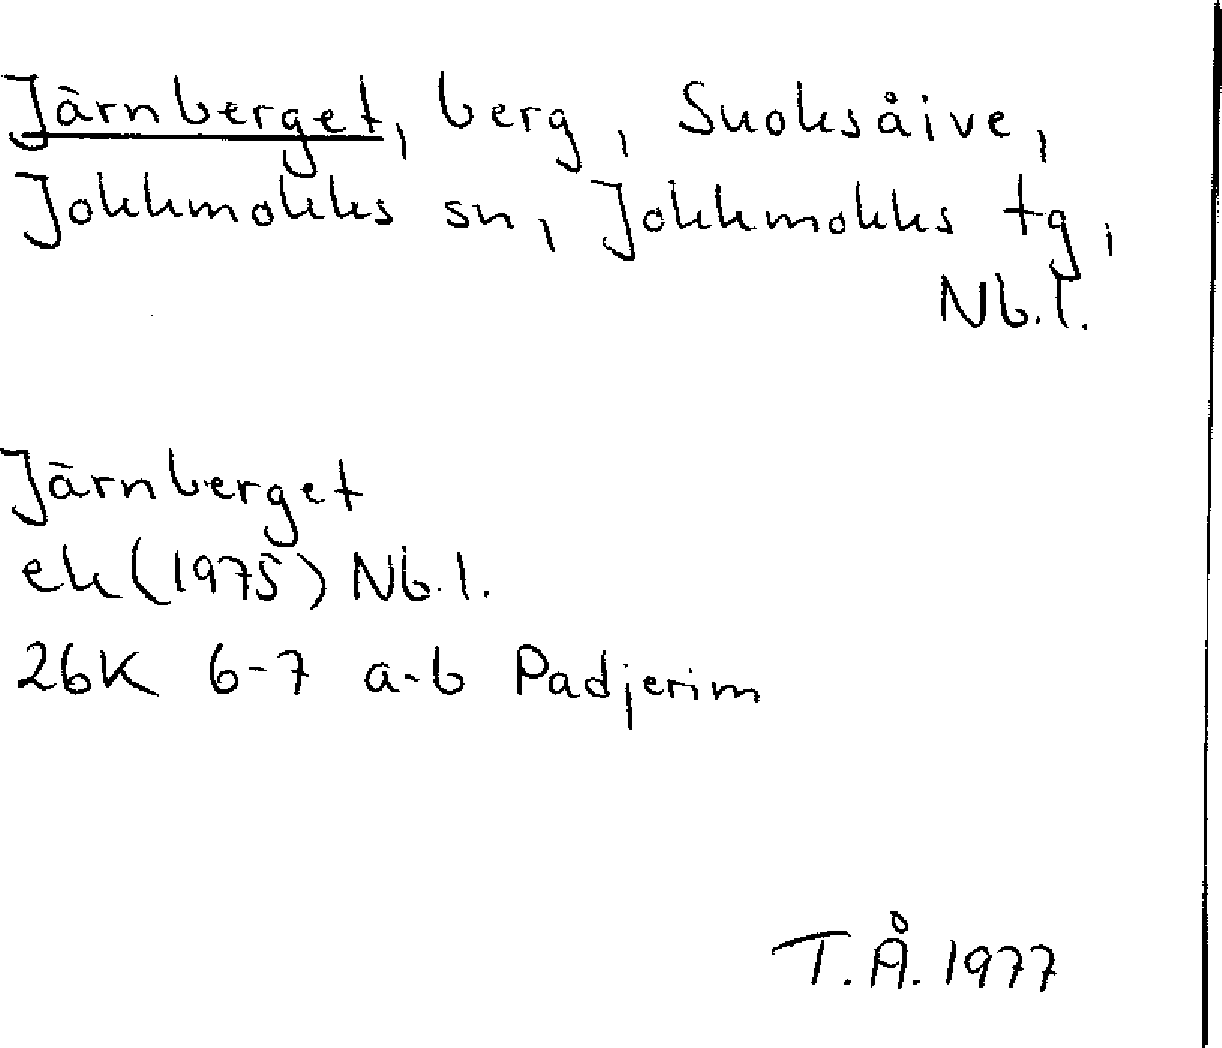 Järnberget, berg, Suoksåive,
Jokkmokks sn, Jokkmokks tg,
Nb.l.
Järnberget
ek (1975) Nb.l.
26K 6-7 a-b Padjerim
T.Å. 1977